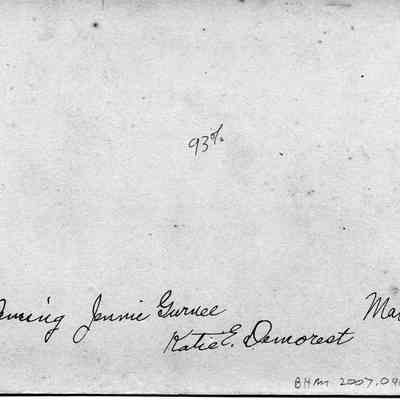 93%
Jennie Gurnee
Katie E. Demorest
BHM 2007.04